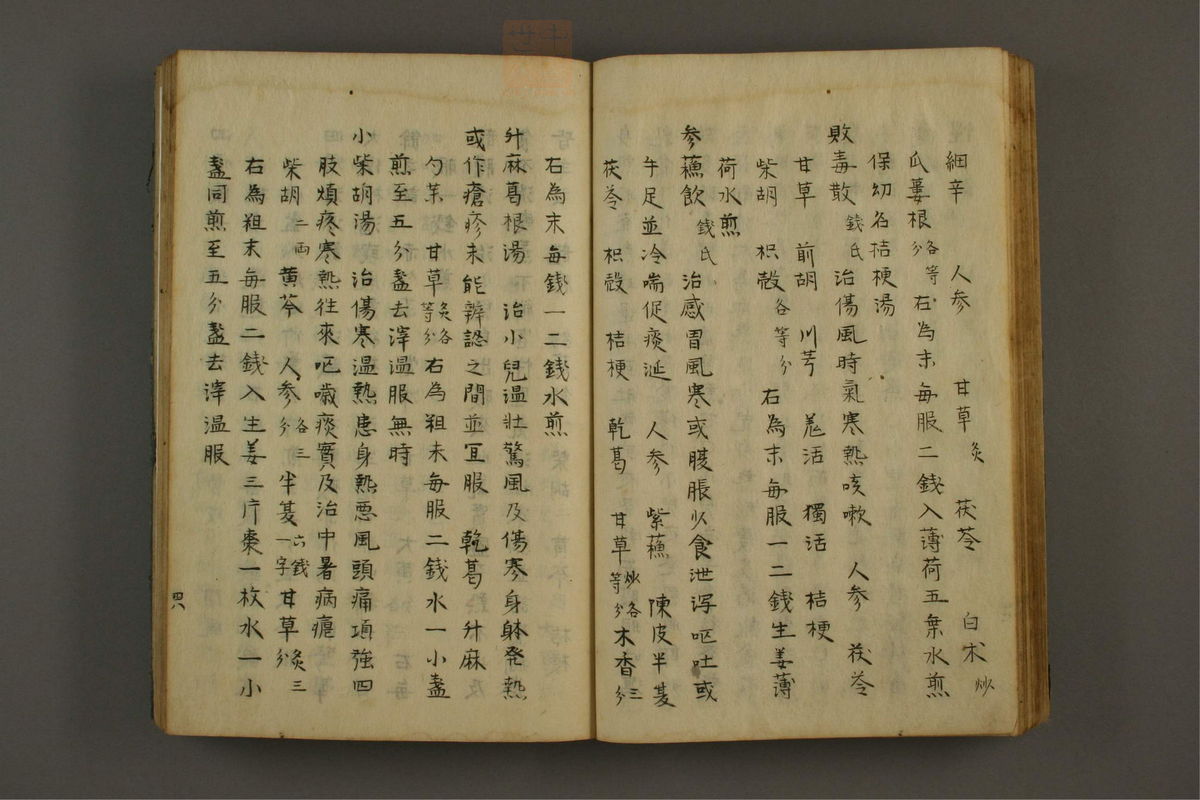 細辛 人参 甘草炙 茯苓 白术炒
瓜蔞根各等分 右為末每服二錢入薄荷五葉水煎
保幼名桔梗湯
敗毒散錢氏 治傷風時氣寒熱咳嗽 人参 茯苓
甘草 前胡 川芎 羗活 獨活 桔梗
柴胡 枳殼各等分 右為末每服一二錢生姜薄
荷水煎
参蘓飲錢氏 治感冒風寒或腹脹少食泄瀉嘔吐或
手足並冷喘促痰涎 人参 紫蘓 陳皮半夏
茯苓 枳殼 桔梗 乾葛 甘草炒各等分木香三分
右為末每錢一二錢水煎
升麻葛根湯 治小兒温壮驚風及傷寒身躰発熱
或作瘡疹未能辨認之間並宜服 乾葛 升麻
勺薬 甘草炙各等分右為粗末每服二錢水一小盞
煎至五分盞去滓温服無時
小柴胡湯 治傷寒温熱患身熱悪風頭痛項強四
肢煩疼寒熱往來嘔噦痰實及治中暑病瘧
柴胡二両黄芩 人参各三分半夏六錢一字甘草炙三分
右為粗末每服二錢入生姜三片棗一枚水一小
盞同煎至五分盞去滓温服
四八